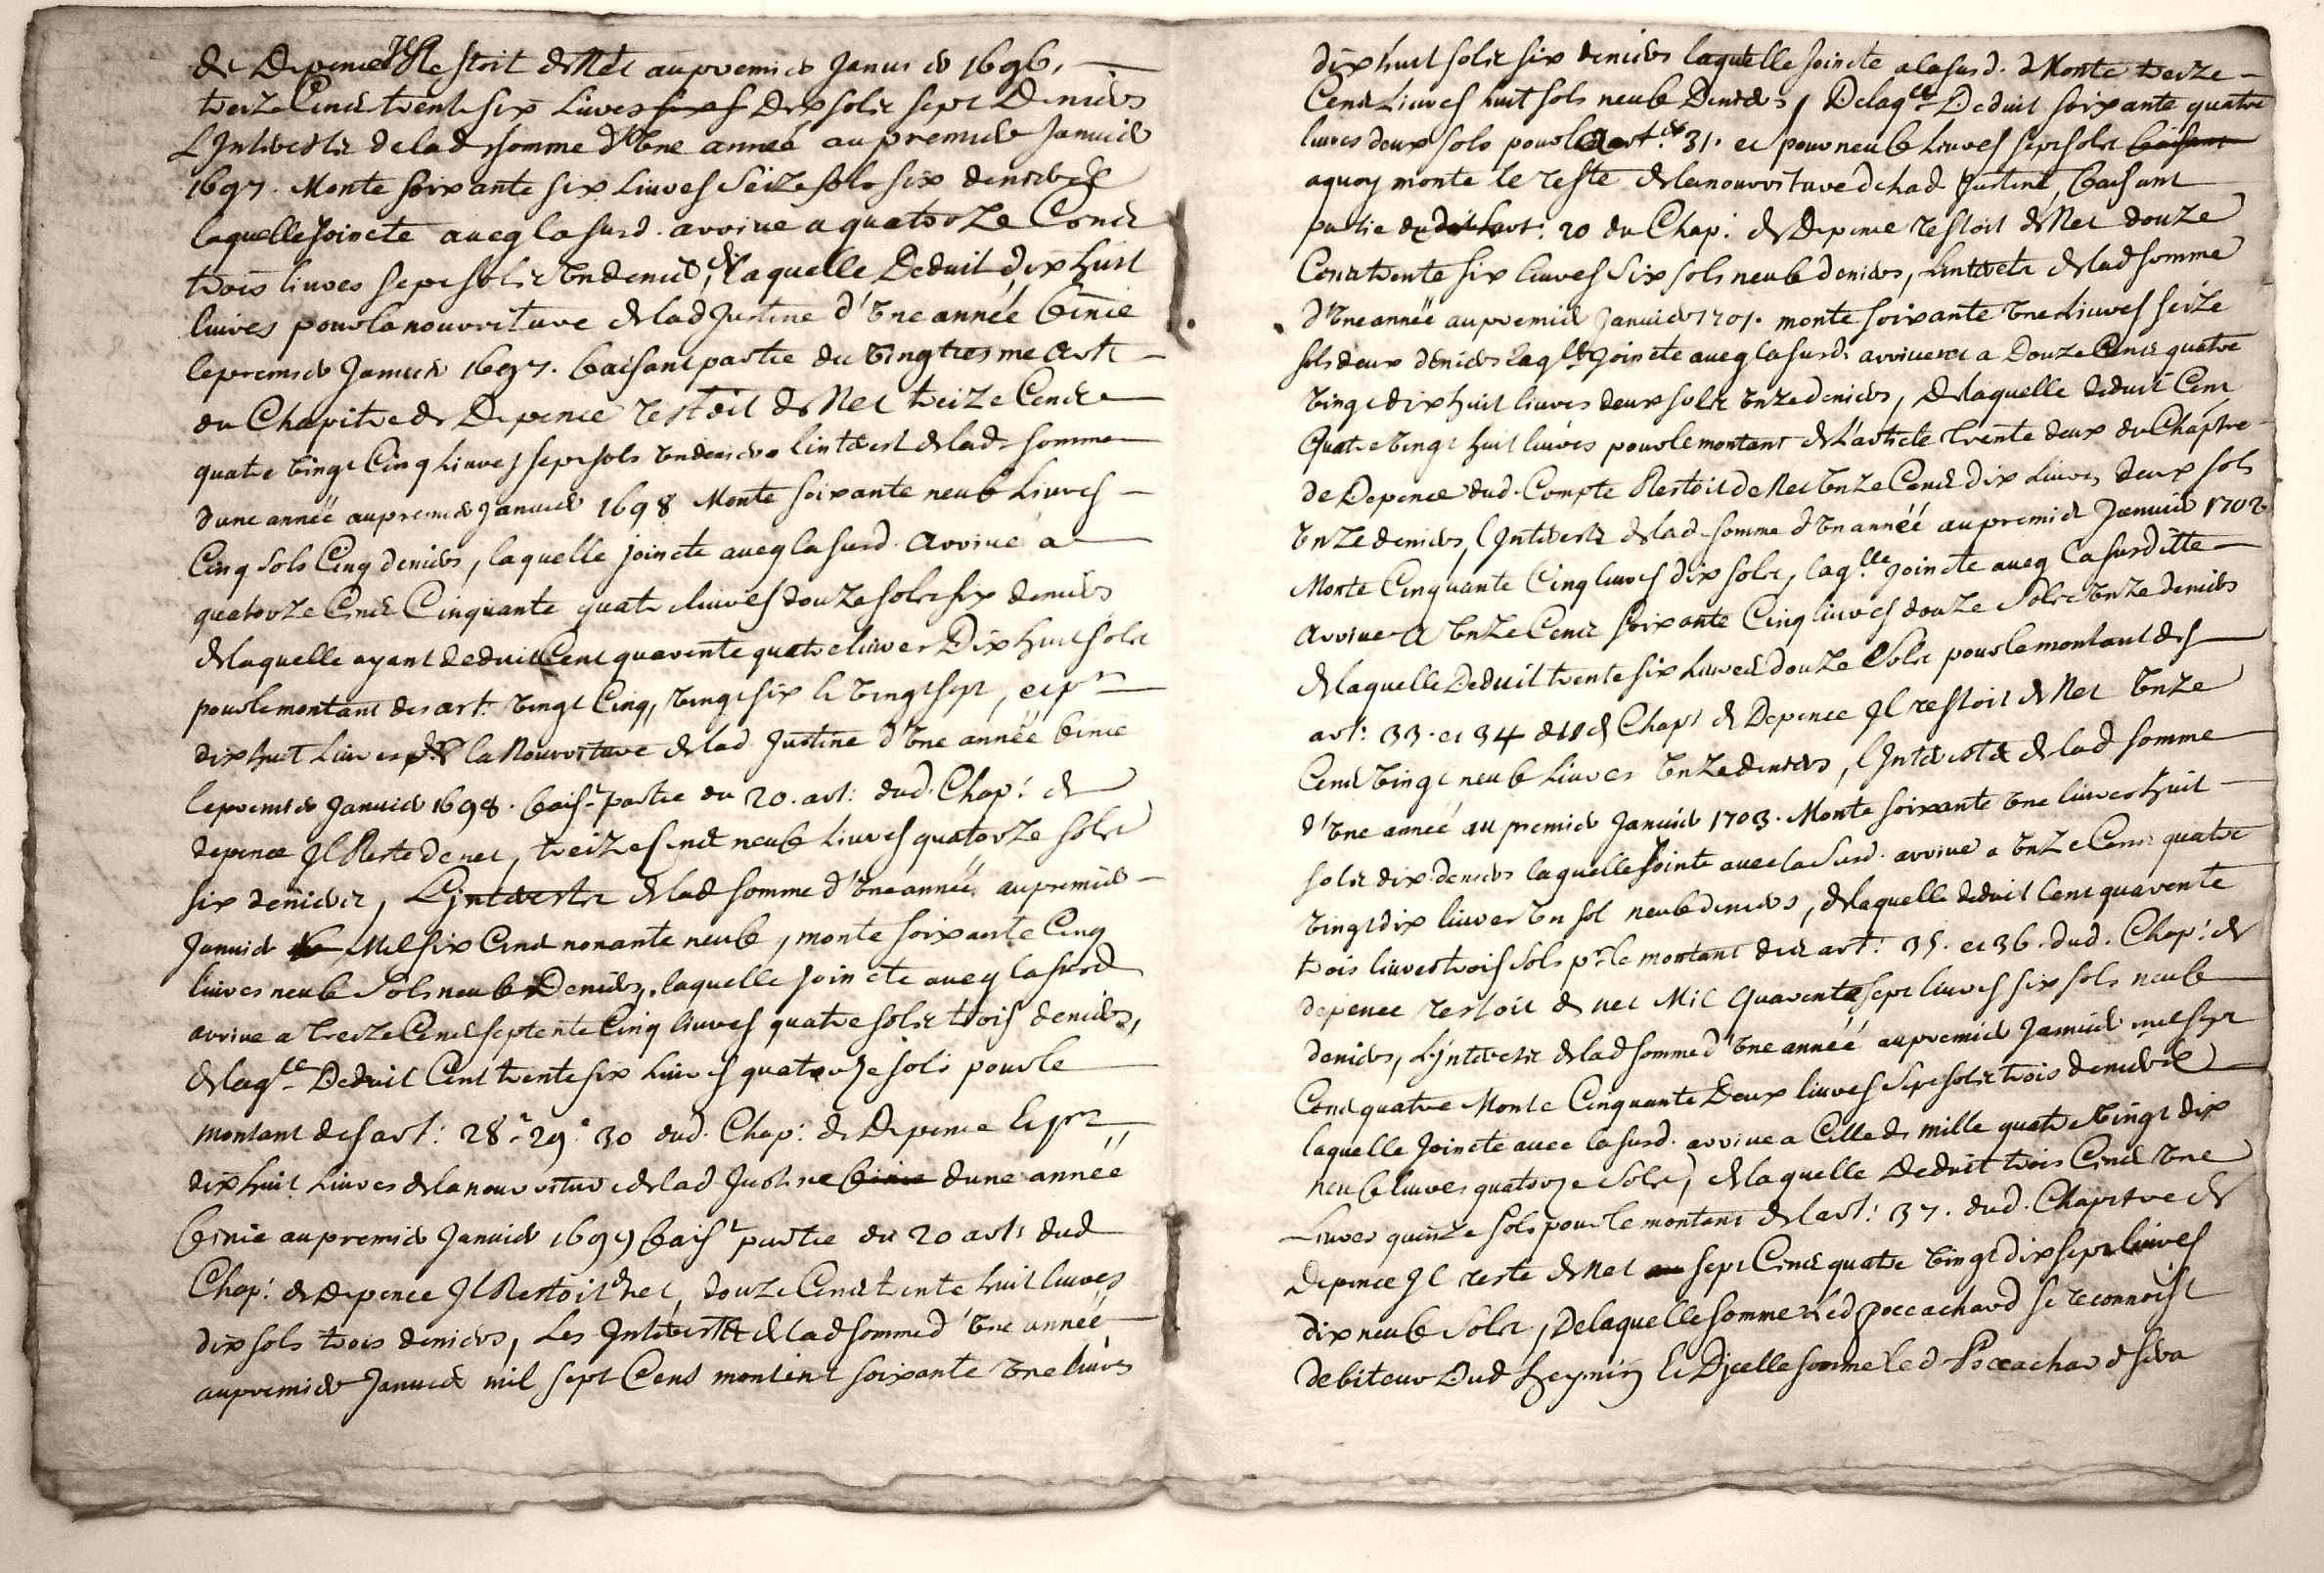 de Depence Il Restoit de Net au premier Januier 1696.
treize Cent trente six Liures Dix sols sept Deniers
L'Interestz de lad somme d'vne année au premier Januier
1697. Monte soixante six Liures Seize sols six deniers
laquelle Joincte aueq la susd. arriue a quatorze Cent
trois liures sept sols vn denier, de laquelle Deduit dix huit
liures pour la nourriture de lad Justine d'vne année finie
le premier Januier 1697. faisant partie du vingtiesme Art
du Chapitre de Depence restoit de Net treize Cent
quatre vingt Cinq Liures sept sols vn denier lintérest de lad. somme
dune année au premier Januier 1698 Monte soixante neuf Liures
Cinq sols Cinq deniers, laquelle joincte aueq la susd. arriue a
quatorze Cent Cinquante quatre liures douze sols six deniers
de laquelle ayant deduit Cent quarente quatre liures Dix huit sols
pour le montant des art. vingt Cinq, vingt six le vingt sept, et pr
dix huit Liures la Nourriture de lad Justine d'vne année finie
le premier Januier 1698. fais.t partie du 20. art: dud. Chap: de
depence Il Reste de net, treize cent neuf Liures quatorze sols
six deniers, L'interestz de lad somme d'vne année au premier
Januier Mil six Cent nonante neuf, monte soixante Cinq
liures neuf Sols neuf Deniers, laquelle joincte aueq la susd
arriue a treize Cent septente Cinq liures quatre sols trois deniers,
de laq.lle Deduit Cent trente six Liures quatorze sols pour le
montant des art: 28. 29. 30 dud. Chap: de Depence Et pr
dix huit Liures de la nourriture de lad Justine finie dune année
finie au premier Januier 1699 fais.t partie du 20 art: dud
Chap: de Depence Il Restoit de net, douze Cent trente huit liures
dix sols trois deniers, Les Interestz de lad somme d'vne année
au premier Januier mil sept Cent montent soixante vne liures
dix huit sols six deniers laquelle Joincte a la susd. Monte treize
Cent Liures huit sols neuf Deniers, Delaq.lle Deduit soixante quatre
liures deux sols pour le art. 31. et pour neuf Liures sept sols faisant
aquoy monte le reste de la nourriture de lad Justine, faisant
partie dudit art: 20 du Chap: de Depence restoit de Net douze
Cent trente six liures six sols neuf deniers, L'interetz de lad somme
d'vne année au premier Januier 1701. monte soixante vne Liures seize
sols deux deniers laq.lle Joincte aueq la susd. arriuent a Douze Cent quatre
vingt dix huit liures deux sols vnze deniers, De laquelle deduit Cent
Quatre vingt huit liures pour le montant de l'article trente deux du Chaptre
de Depence dud. Compte Restoit de Net vnze Cent dix Liures deux sols
vnze deniers, l'Interestz de lad. somme d'vn année au premier Januier 1702
Monte Cinquante Cinq liures dix sols, laq.lle joincte aueq la susditte
arriue a vnze Cent soixante Cinq liures douze Sols vnze deniers
de laquelle Deduit trente six Liures douze Sols pour le montant des
art: 33. et 34 dud Chap: de Depence Il restoit de Net vnze
Cent vingt neuf Liures vnze deniers, l'Interestz de lad somme
d'vne année au premier Januier 1703. Monte soixante vne liures huit
sols dix deniers laquelle Jointe auec la Susd. arriue a vnze Cent quatre
vingt dix liures vn sol neuf deniers, de laquelle deduit Cent quarente
trois liures trois sols pr. le montant des art: 35. et 36. dud. Chap: de
depence restoit de net Mil Quarente sept liures six sols neuf
deniers, L'Interestz de lad somme d'vne année au premier Januier mil sept
Cent quatre Monte Cinquante Deux liures Sept sols trois deniers
laquelle Joincte auec la susd. arriue a Celle de mille quatre vingt dix
neuf liures quatorze Sols, de laquelle Deduit trois Cent vne
Liures quinze sols pour le montant de l'art: 37. dud. Chapitre de
Depence Il reste de Net sept Cent quatre vingt dix sept liures
dix neuf Sols, De laquelle somme led Poccachard se reconnoist
debiteur Dud Heymin Et Dicelle somme led Poccachard sera